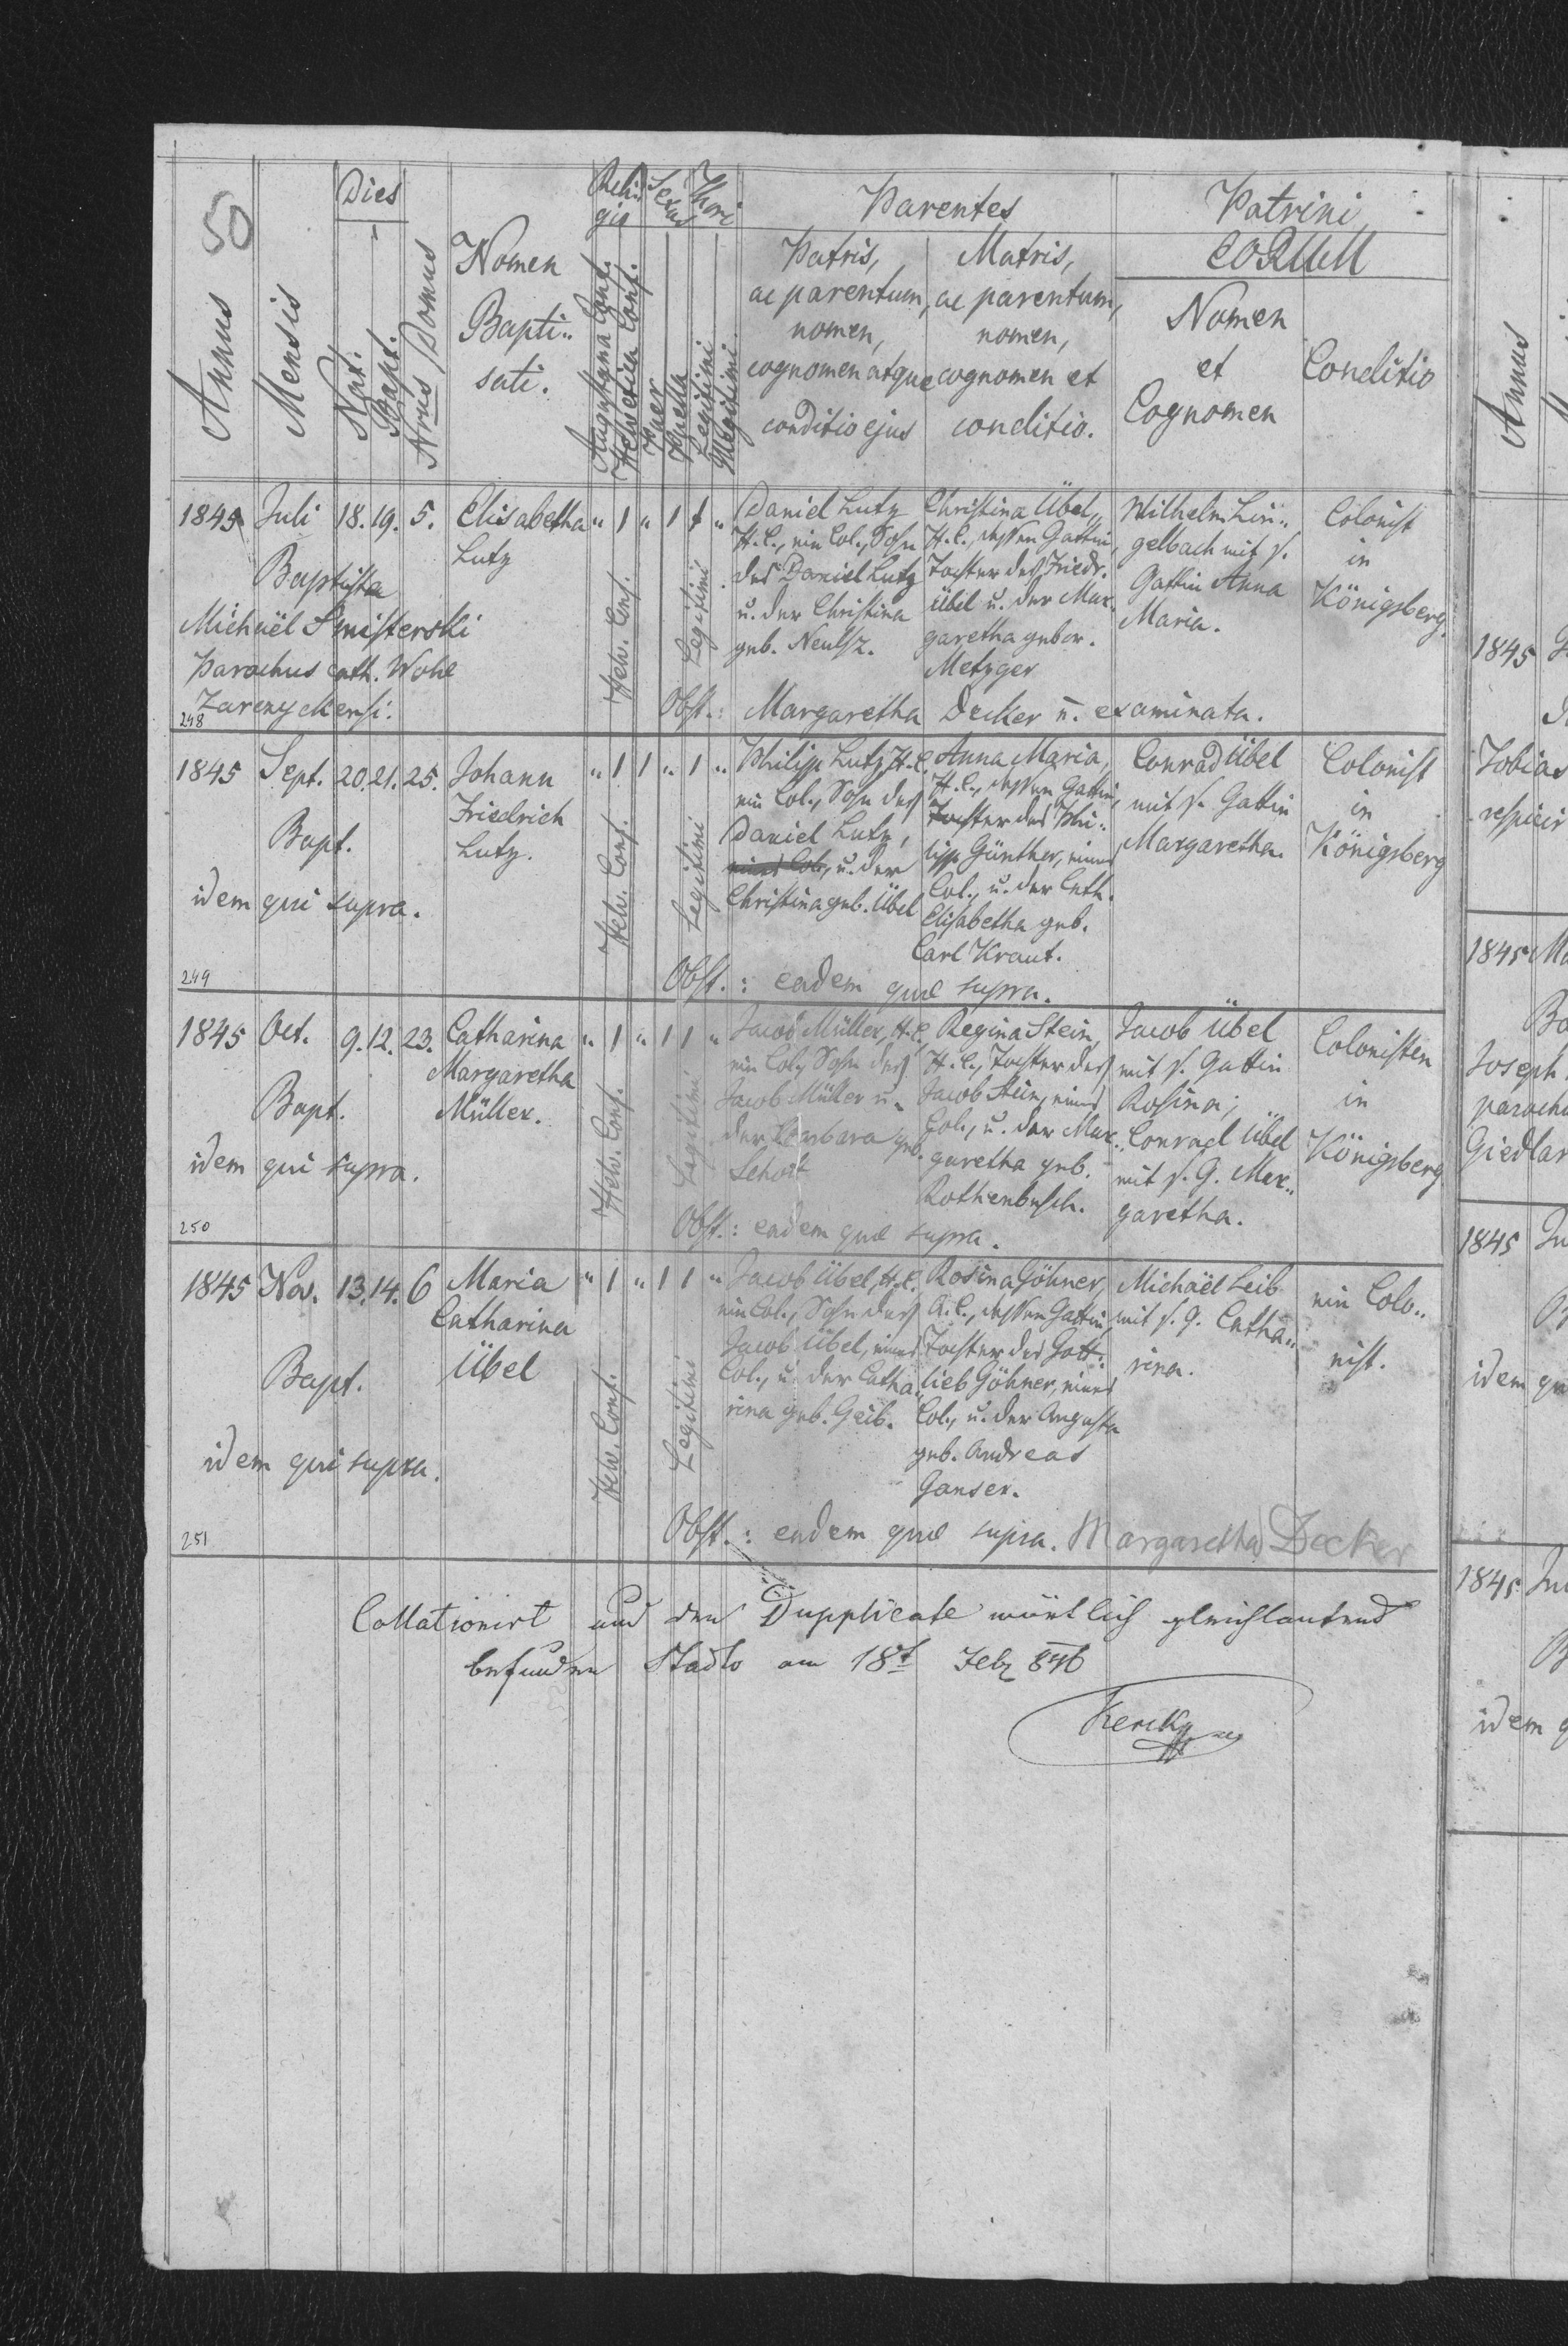 50
Annus
Mensis
Dies
Nat.
Bapt.
Nrus Domus
Nomen
Bapti„
sati.
Reli„
gio
Augustana Conf.
Helvetica Conf.
Sexus
Puer
Puella
Thori
Legitimi
Illegitimi
Parentes
Patris,
ac parentum,
nomen,
cognomen atque
conditio ejus
Matris,
ac parentum,
nomen,
cognomen et
conditio.
Patrini
eorum
Nomen
et
Cognomen
Conditio
1845 Juli 18. 19. 5.
Elisabetha
Lutz
„ 1 „ 1 1 „
Baptista
Michaël
Parochus cath. Wohl
248
Helv. Conf.
Legitimi
Daniel Lutz
H. C., ein Col., Sohn
des Daniel Lutz
u. der Christina
geb.
Christina Übel,
H. C., dessen Gattin,
Tochter des Friedr.
Übel u. der Mar„
garetha gebor.
Metzger
Wilhelm Lin„
gelbach mit s.
Gattin Anna
Maria.
Colonist
in
Königsberg.
Obst.: Margaretha Decker n. examinata.
1845 Sept. 20. 21. 25.
Johann
Friedrich
Lutz.
„ 1 1 „ 1 „
Bapt.
idem qui supra.
249
Helv. Conf.
Legitimi
Philipp Lutz, H. C.
ein Col., Sohn des
Daniel Lutz,
eines Col., u. der
Christina geb. Übel
Anna Maria,
H. C., dessen Gattin,
Tochter des Phi„
lipp Günther, eines
Col., u. der Cath.
Elisabetha geb.
Carl Kraut.
Conrad Übel
mit s. Gattin
Margaretha.
Colonist
in
Königsberg
Obst.: eadem quæ supra.
1845 Oct. 9. 12. 23.
Catharina
Margaretha
Müller.
„ 1 „ 1 1 „
Bapt.
idem qui supra.
250
Helv. Conf.
Legitimi
Jacob Müller, H. C.
ein Col., Sohn des
Jacob Müller u.
der Barbara geb.
Schott
Regina Stein,
H. C., Tochter des
Jacob Stein, eines
Col., u. der Mar„
garetha geb.
Rothenbusch.
Jacob Übel
mit s. Gattin
Rosina;
Conrad Übel
mit s. G. Mar„
garetha.
Colonisten
in
Königsberg
Obst.: eadem quæ supra.
1845 Nov. 13. 14. 6
Maria
Catharina
Übel
„ 1 „ 1 1 „
Bapt.
idem qui supra.
251
Helv. Conf.
Legitimi
Jacob Übel, H. C.
ein Col., Sohn des
Jacob Übel, eines
Col., u. der Catha„
rina geb. Geib.
Rosina Göhner,
A. C., dessen Gattin,
Tochter des Gott„
lieb Göhner, eines
Col., u. der Augusta
geb. Andreas
Ganser.
Michaël Leib
mit s. G. Catha„
rina.
ein Colo„
nist.
Obst.: eadem quæ supra. Margaretha Decker
Collationirt und dem Dupplicate wörtlich gleichlautend
befunden Stadlo am 18t Feb 846
Annus
1845
Tobias
respicir
1845 Ma
Joseph
parochu
Giedlar
1845 Ju
idem qu
1845 Ju
idem q